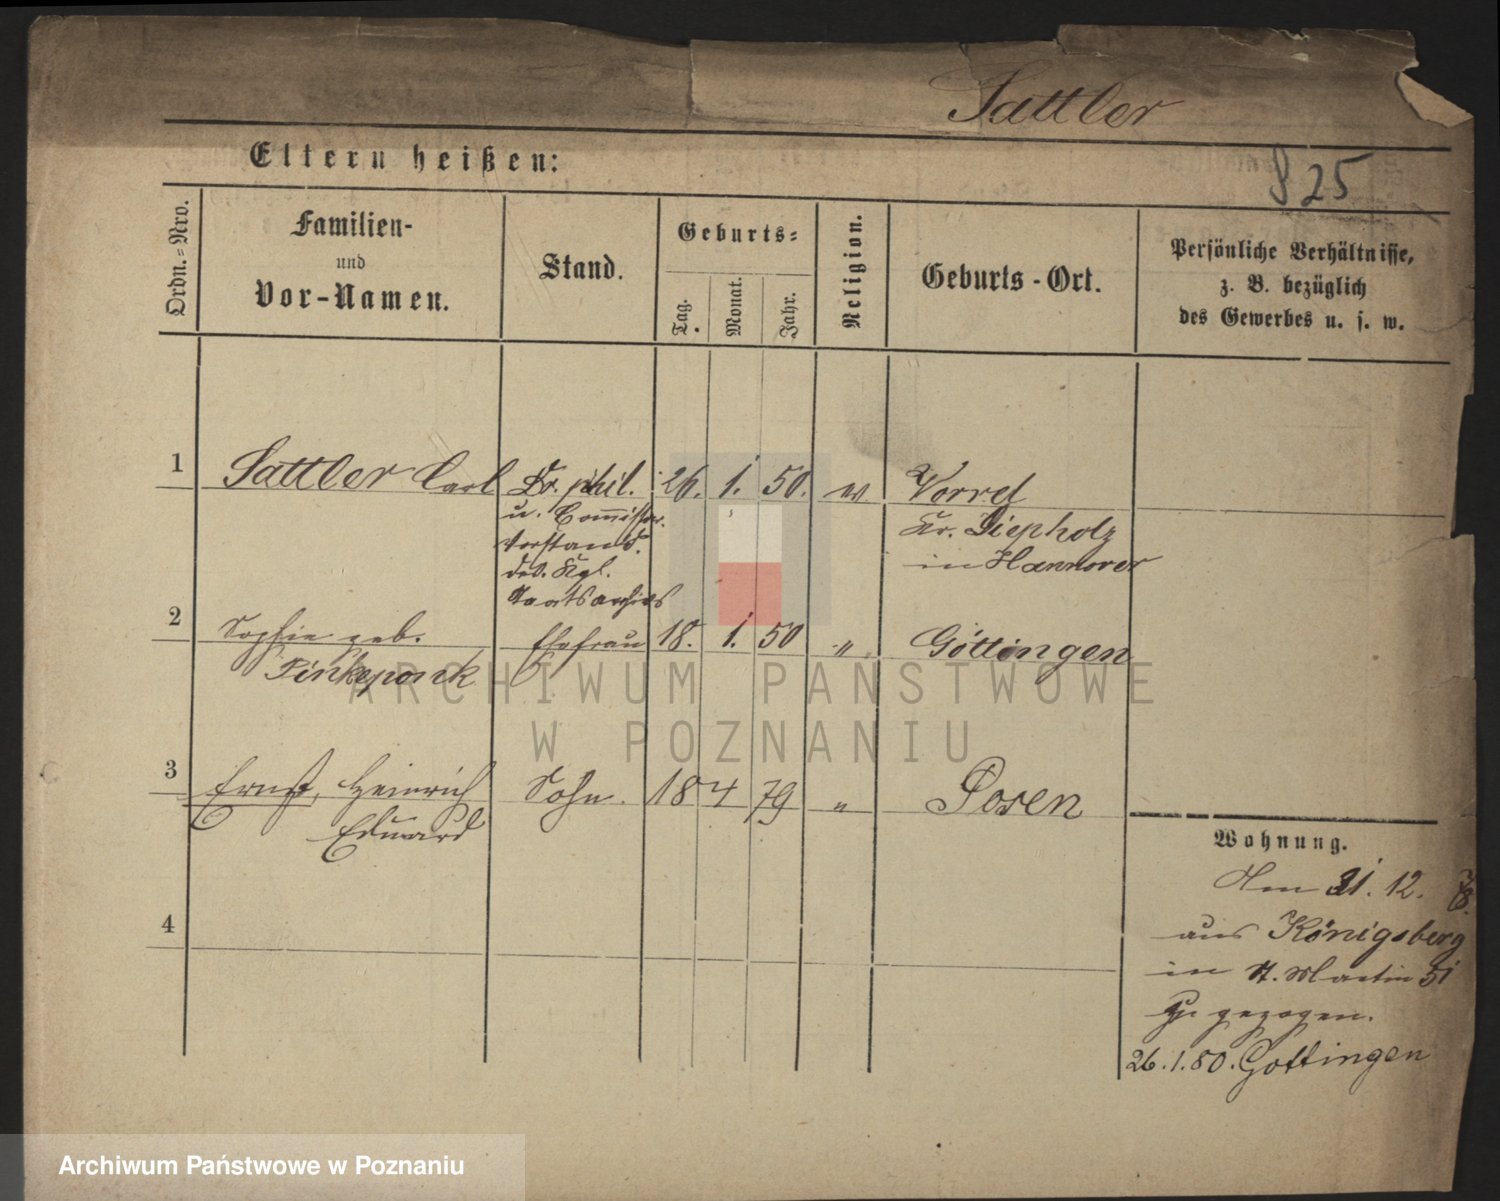 Sattler
Eltern heißen:
825
Ordn.=Nro.
Familien-
und
Vor-Namen.
Stand.
Geburts=
Tag.
Monat.
Jahr.
Religion.
Geburts-Ort.
Persönliche Verhältnisse,
z. B. bezüglich
des Gewerbes u. s. w.
1 Sattler Carl Dr. phil. 26. 1. 50. Vorrel
u. Commissar.
Vorstand.
des. Kgl.
Staatsarchivs
Kr. Diepholz
in Hannover
2 Sophie geb. Ehefrau 18. 1. 50 " Göttingen
3 Ernst, Heinrich Sohn. 18 4 79 " Posen
Eduard
4
Wohnung.
12. 78.
aus Königsberg
in St. Martin 51
zu gezogen.
26.1.80. Gottingen
ARCHIWUM PAŃSTWOWE
W POZNANIU
Archiwum Państwowe w Poznaniu